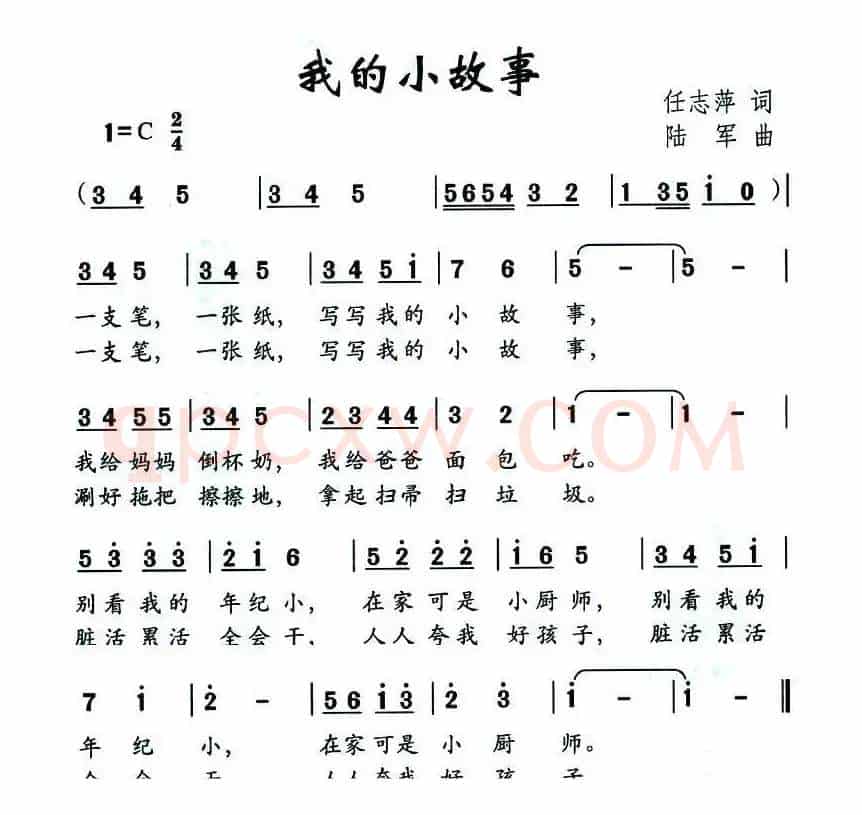 我的小故事
任志萍 词
1=C 2/4
陆 军 曲
(3 4 5 | 3 4 5 | 5654 3 2 | 1 35 i 0 )|
3 4 5 | 3 4 5 | 3 4 5 i | 7 6 | 5 - | 5 - |
一支笔, 一张纸, 写写我的 小 故 事,
一支笔, 一张纸, 写写我的 小 故 事,
3 4 5 5 | 3 4 5 | 2 3 4 4 | 3 2 | 1 - | 1 - |
qpcxw.COM
我给妈妈 倒杯奶, 我给爸爸 面 包 吃。
涮好拖把 擦擦地, 拿起扫帚 扫 垃 圾。
5 3̇ 3̇ 3̇ | 2̇ i 6 | 5 2̇ 2̇ 2̇ | i 6 5 | 3 4 5 i |
别看我的 年纪小, 在家可是 小厨师, 别看我的
脏活累活 全会干, 人人夸我 好孩子, 脏活累活
7 i | 2̇ - | 5 6 i 3̇ | 2̇ 3̇ | i - | i - ‖
年 纪 小, 在家可是 小 厨 师。
全 会 干, 人人夸我 好 孩 子,